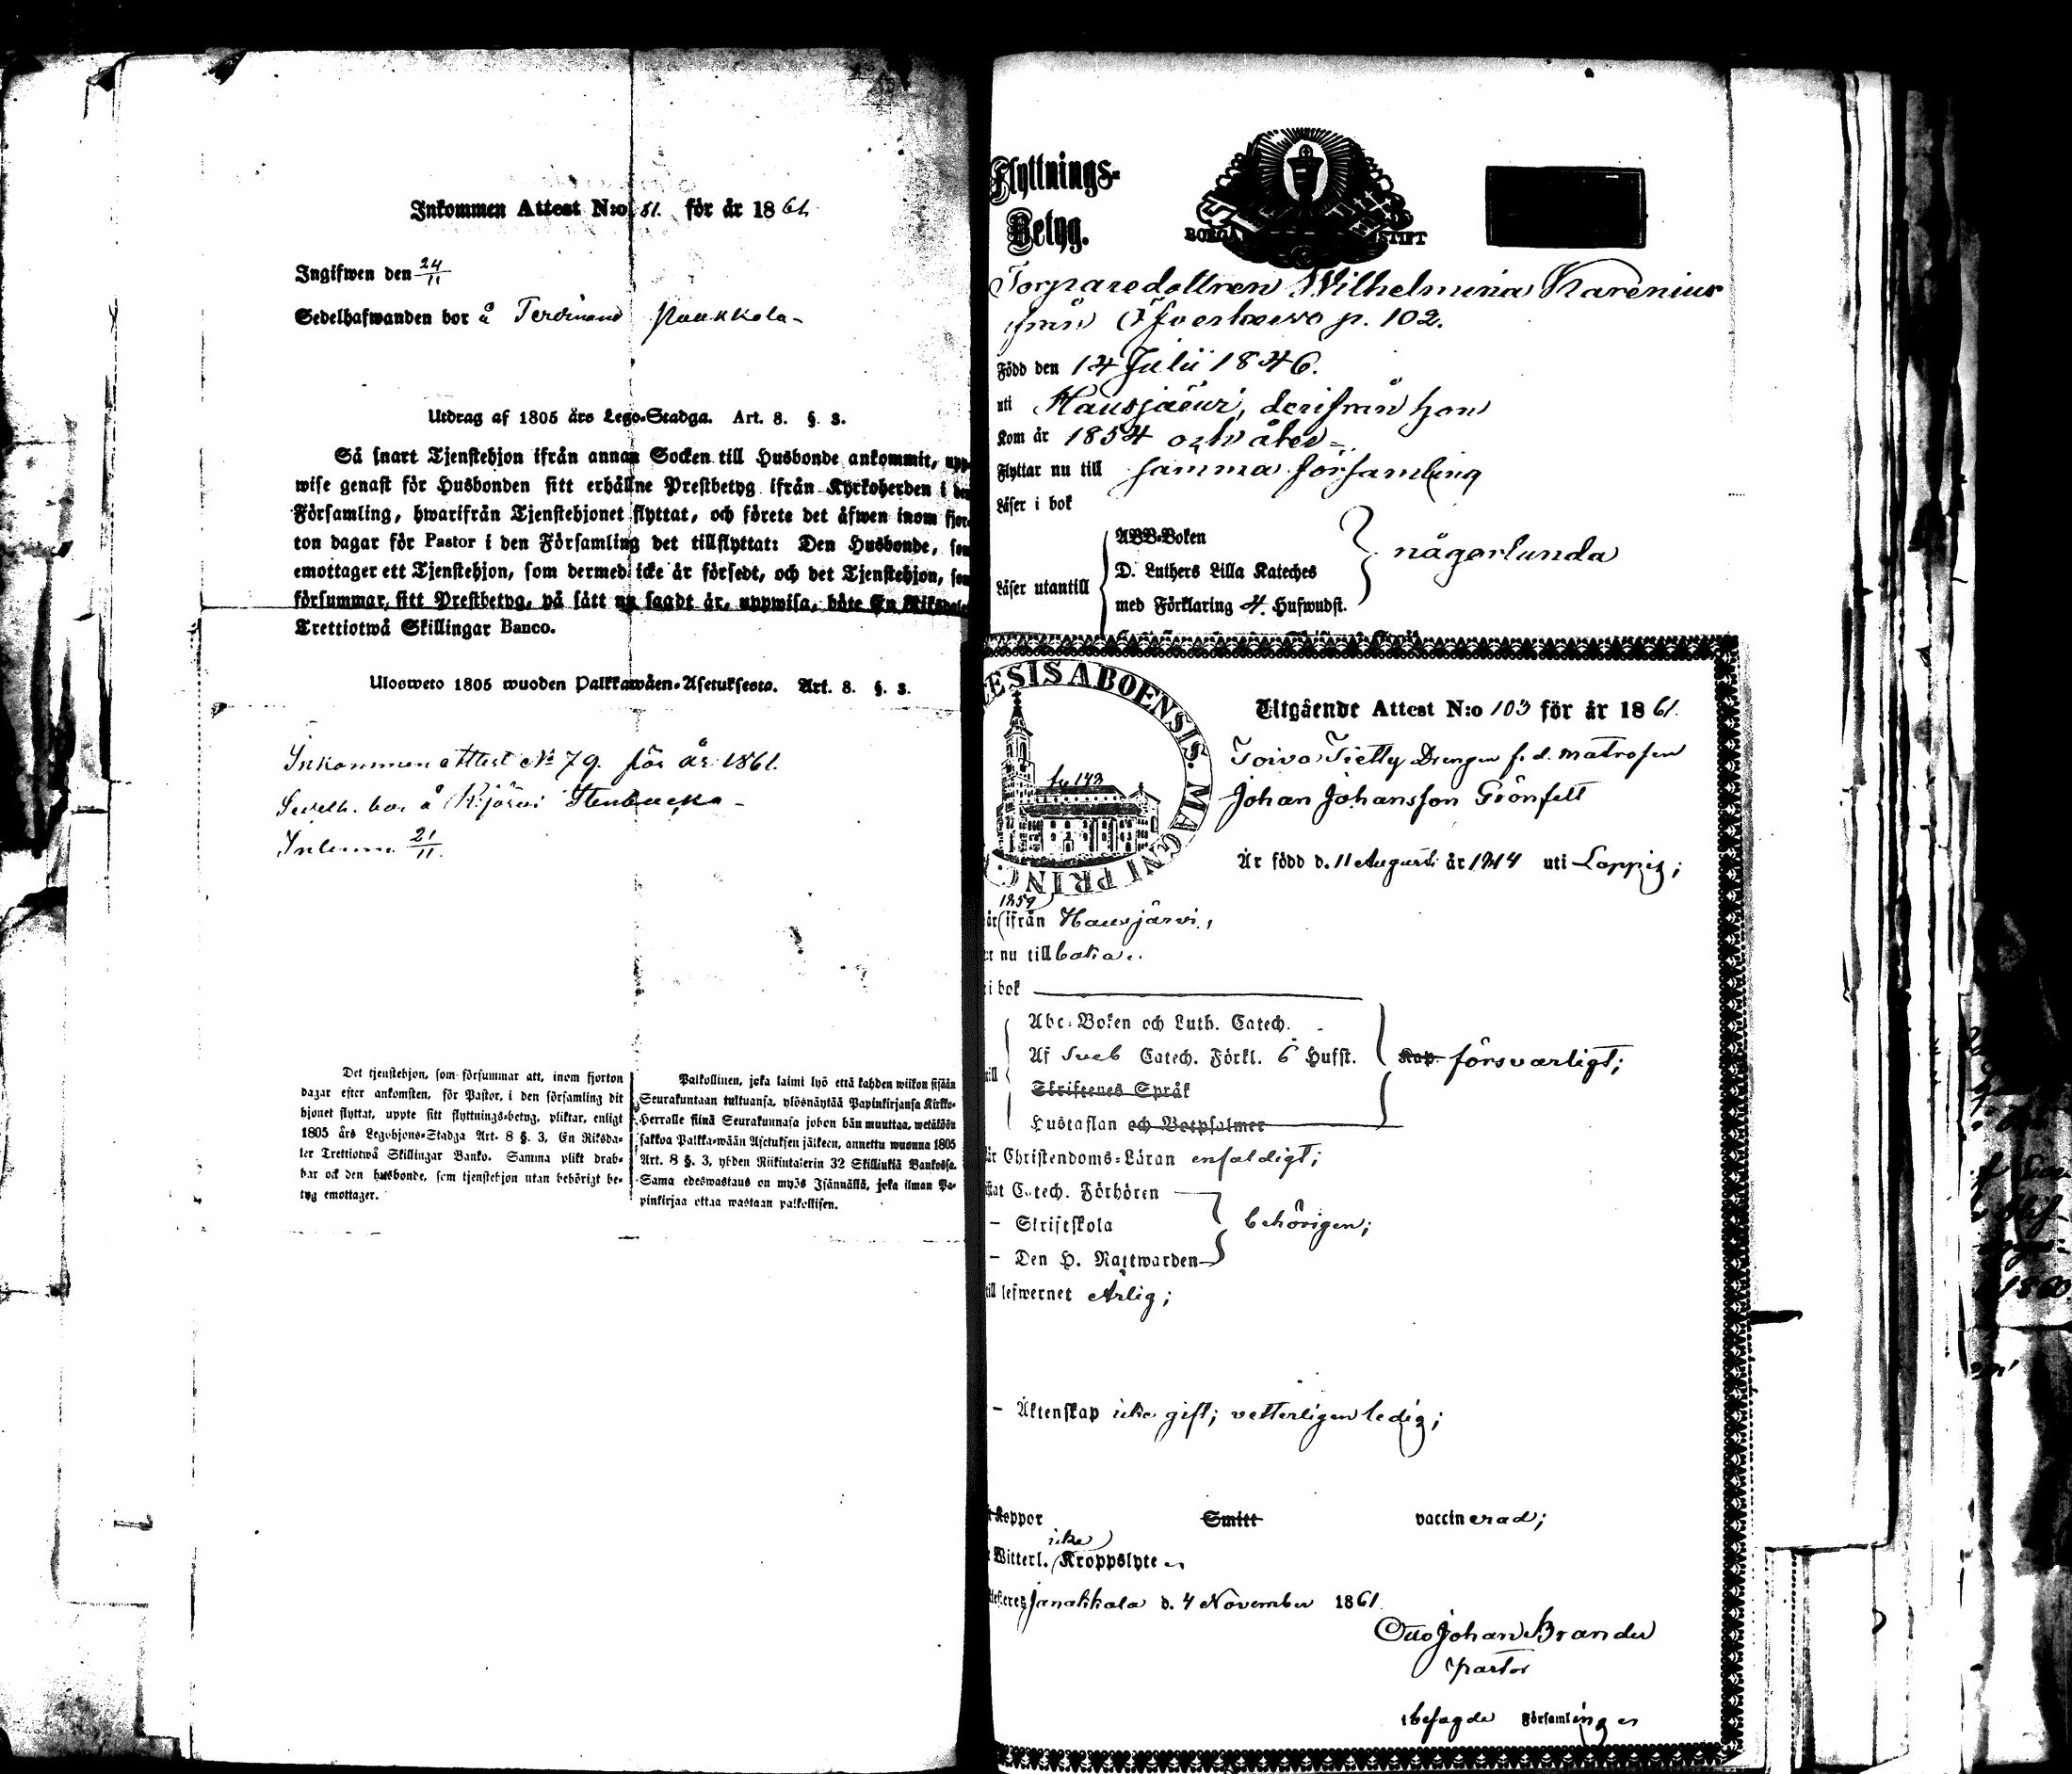 Inkommen Attest N:o 81. för år 1861.
Ingifwen den 24/11
Sedelhafwanden bor å Ferdinand Paukkola-
Utdrag af 1805 års Lego-Stadga. Art. 8. §. 3.
Så snart Tjenstehjon ifrån annan Socken till Husbonde ankommit, upp-
wise genast för Husbonden sitt erhållne Prestbetyg ifrån Kyrkoherden i den
Församling, hwarifrån Tjenstehjonet flyttat, och förete det äfwen inom fjor-
ton dagar för Pastor i den Församling det tillflyttat: Den Husbonde, som
emottager ett Tjenstehjon, som dermed icke är försedt, och det Tjenstehjon, som
försummar, sitt Prestbetyg, på sätt nu sagdt är, uppwisa, böte En Riksdaler
Trettiotwå Skillingar Banco.
Ulosweto 1805 wuoden Palkkawäen-Asetuksesta. Art. 8. §. 3.
Inkommen attest No 79. för år 1861.
Sedelh. bor å
21/11.
Det tjenstehjon, som försummar att, inom fjorton
dagar efter ankomsten, för Pastor, i den församling dit
hjonet flyttat, uppte sitt flyttnings-betyg, pliktar, enligt
1805 års Legohjons-Stadga Art. 8 §. 3, En Riksda-
ler Trettiotwå Skillingar Banko. Samma plikt drab-
bar ock den husbonde, som tjenstehjon utan behörigt be-
tyg emottager.
Palkollinen, joka laimi lyö että kahden wiikon sisään
Seurakuntaan tultuansa, ylösnäytää Papinkirjansa Kirkko-
Herralle siinä Seurakunnasa johon hän muuttaa, wetäköön
sakkoa Palkka-wään Asetuksen jälkeen, annettu wuonna 1805
Art. 8 §. 3, yhden Riikintalerin 32 Skillinkiä Bankossa.
Sama edeswastaus on myös Isännällä, joka ilman Pa-
pinkirjaa ottaa wastaan palkollisen.
Flyttnings-
Betyg.
BORGÅ STIFT
Torparedottren Wilhelmina Karenius
från p. 102.
Född den 14 Julii 1846.
uti Hausjärvi, derifrån hon
Kom år 1854 och åter-
Flyttar nu till samma församling
Läser i bok
ABB-Boken
D. Luthers Lilla Kateches
Läser utantill
med Förklaring 4. Hufwudst.
någorlunda
ESIS ABOENSIS. MAGNI PRINC.
Utgående Attest N:o 103 för år 1861.
Toivo Drengen f. d. Matrosen
Johan Johansson Grönfelt
Är född d. 11 Augusti år 1814 uti Loppis;
1859
år ifrån Hausjärvi,
er nu till baka.
i bok
Abc-Boken och Luth. Catech.
Af Sveb Catech. Förkl. 6 Hufst.
Kap. försvarligt;
Skriftenes Språk
Hustaflan och Botpsalmer
är Christendoms-Läran enfaldigt;
kat Catech. Förhören
– Skriftskola
behörigen;
– Den H. Nattwarden
till lefwernet Ärlig;
– Äktenskap icke gift; vetterligen ledig;
Koppor Smitt vaccinerad;
icke
Witterl. Kroppslyte
Janakkala d. 4 November 1861.
Otto Johan Brander
Pastor
i besagde Församlingen